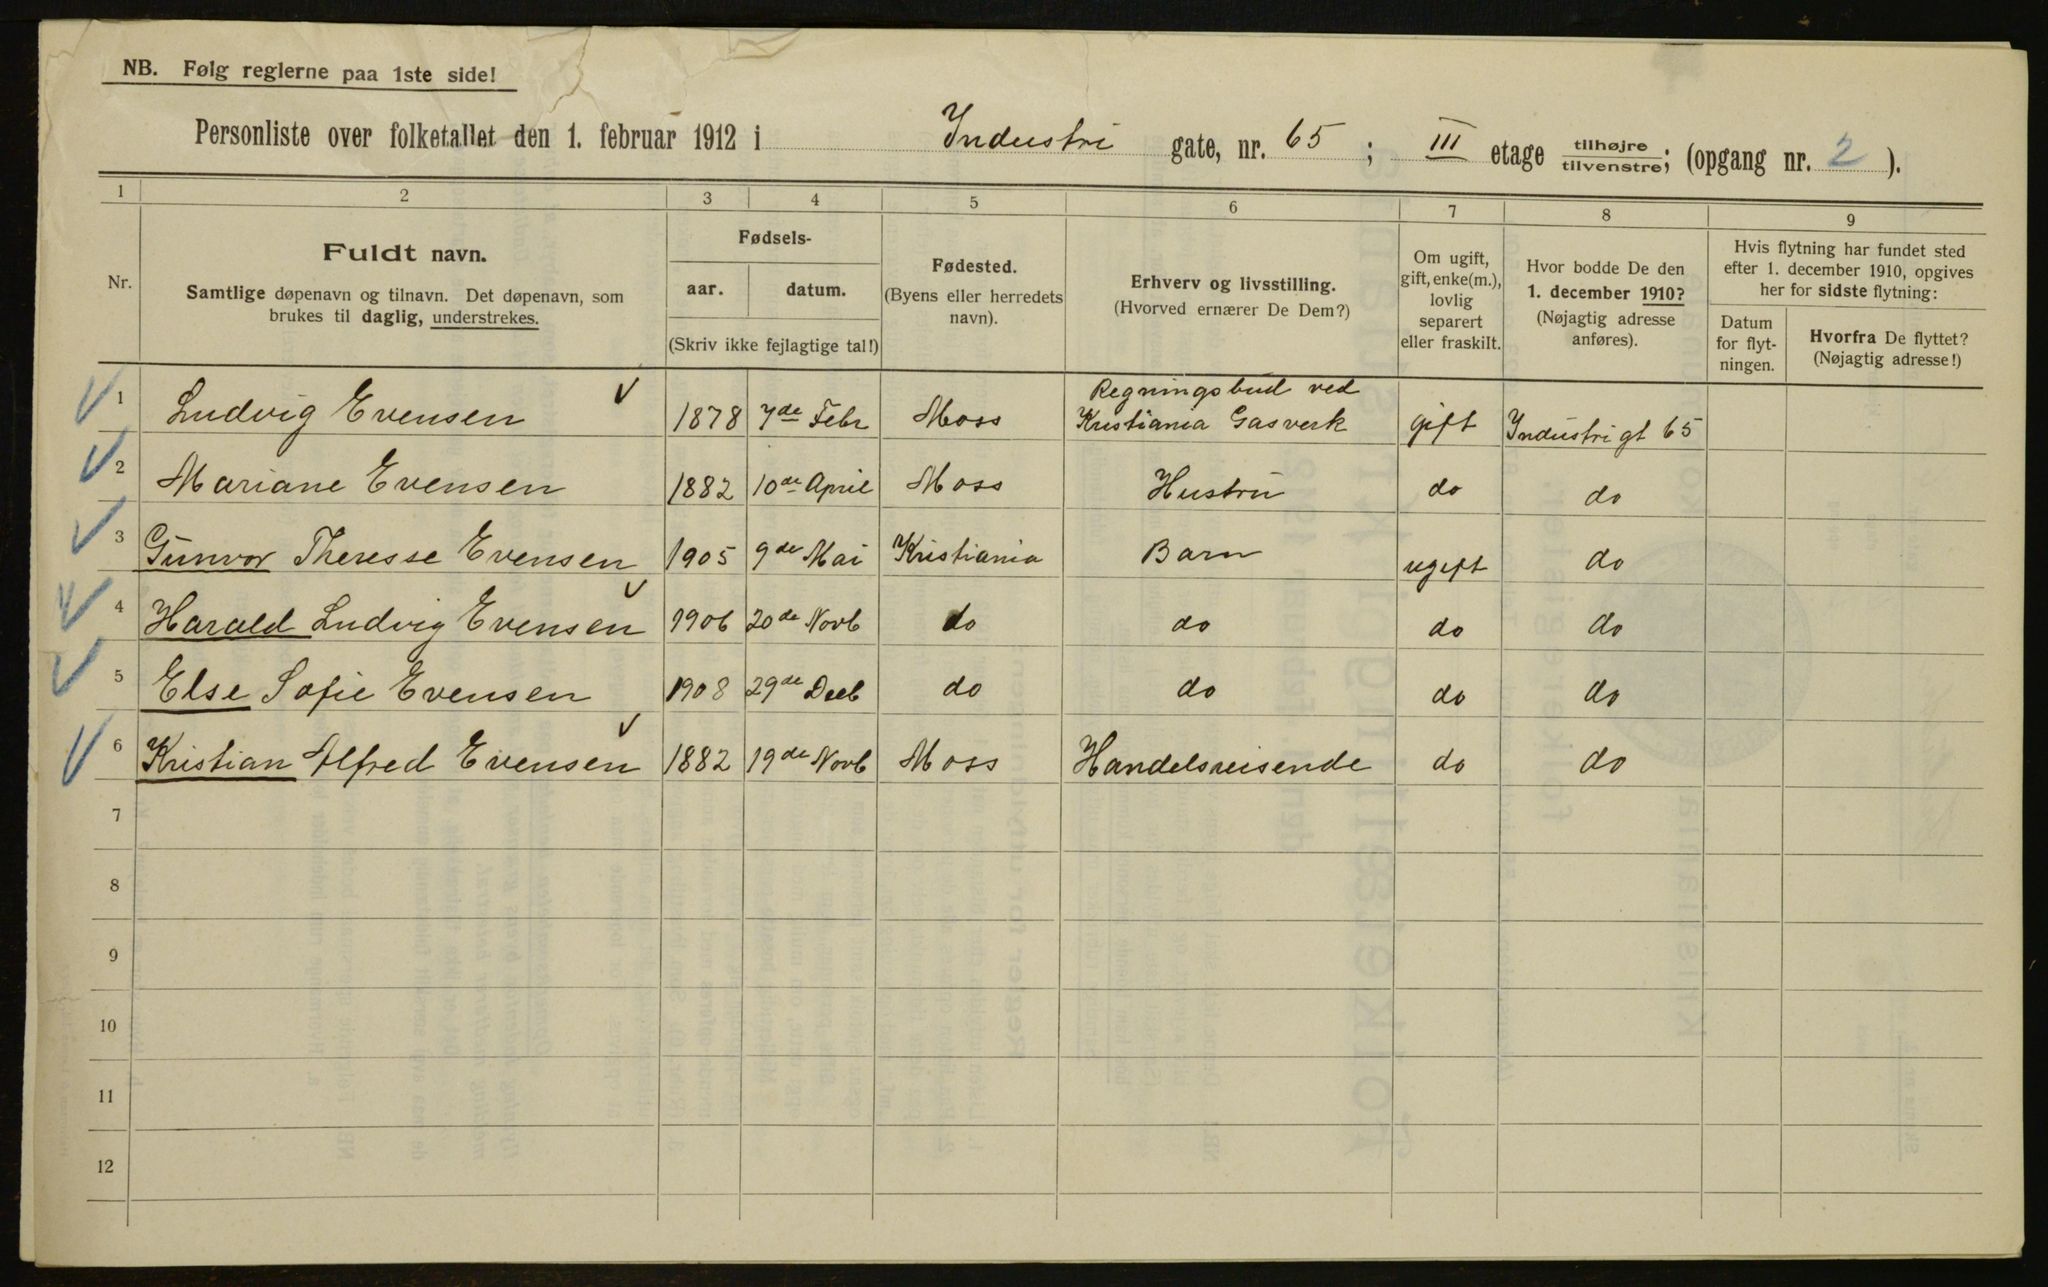 NB. Følg reglerne paa 1ste side!
Personliste over folketallet den 1. februar 1912 i Industri gate, nr. 65 ; III etage tilhøjre / tilvenstre; (opgang nr. 2 ).
1 2 3 4 5 6 7 8 9
Nr.
Fuldt navn.
Samtlige døpenavn og tilnavn. Det døpenavn, som
brukes til daglig, understrekes.
Fødsels-
aar. datum.
(Skriv ikke fejlagtige tal!)
Fødested.
(Byens eller herredets
navn).
Erhverv og livsstilling.
(Hvorved ernærer De Dem?)
Om ugift,
gift, enke(m.),
lovlig
separert
eller fraskilt.
Hvor bodde De den
1. december 1910?
(Nøjagtig adresse
anføres).
Hvis flytning har fundet sted
efter 1. december 1910, opgives
her for sidste flytning:
Datum
for flyt-
ningen.
Hvorfra De flyttet?
(Nøjagtig adresse!)
1 Ludvig Evensen 1878 7de Febr Moss Regningsbud ved
Kristiania Gasverk gift Industrigt 65
2 Mariane Evensen 1882 10de April Moss Hustru do do
3 Gunvor Theresse Evensen 1905 9de Mai Kristiania Barn ugift do
4 Harald Ludvig Evensen 1906 20de Novb do do do do
5 Else Sofie Evensen 1908 29de Decb do do do do
6 Kristian Alfred Evensen 1882 19de Novb Moss Handelsreisende do do
7
8
9
10
11
12